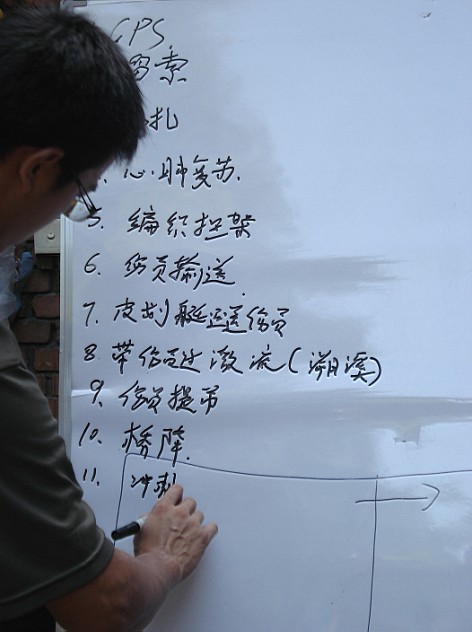 GPS
索
扎
心肺复苏.
5. 编织担架
6. 伤员输送
7. 皮划艇运送伤员
8 带伤员过激流(溯溪)
9. 伤员提吊
10. 桥降
11. 冲刺